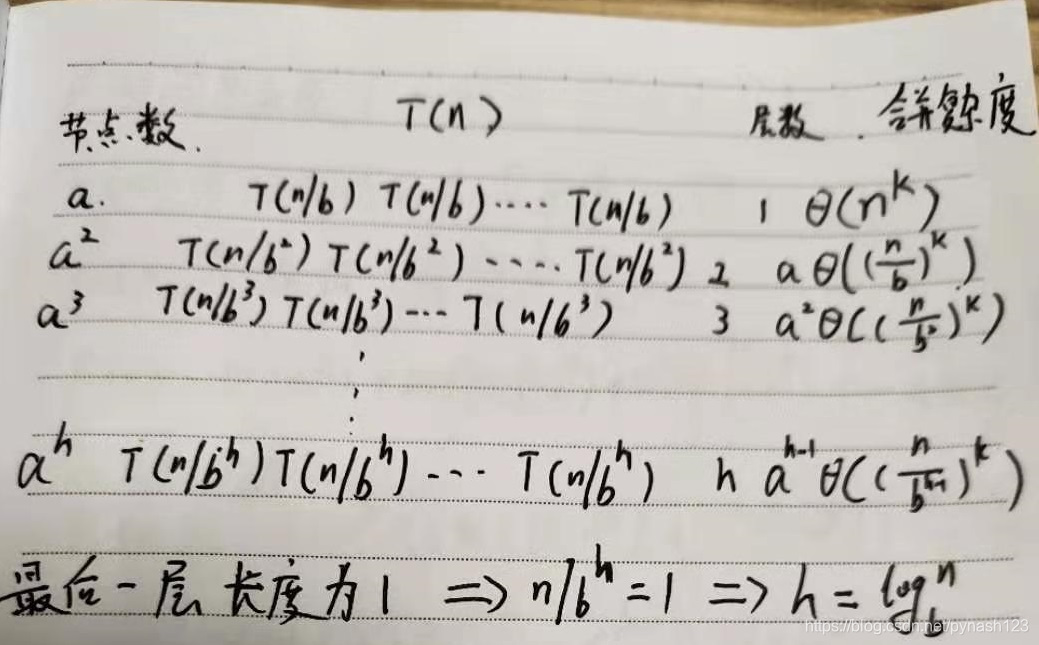 节点数. T(n) 层数. 合并复杂度
a. T(n/b) T(n/b) ···· T(n/b) 1 θ(n^k)
a² T(n/b²) T(n/b²) ····· T(n/b²) 2 a θ((n/b)^k)
a³ T(n/b³) T(n/b³) ··· T(n/b³) 3 a²θ((n/b²)^k)
⋮
a^h T(n/b^h) T(n/b^h) ··· T(n/b^h) h a^(h-1) θ((n/b^(h-1))^k)
最后一层 长度为1 ⇒ n/b^h = 1 ⇒ h = log_b^n
https://blog.csdn.net/pynash123